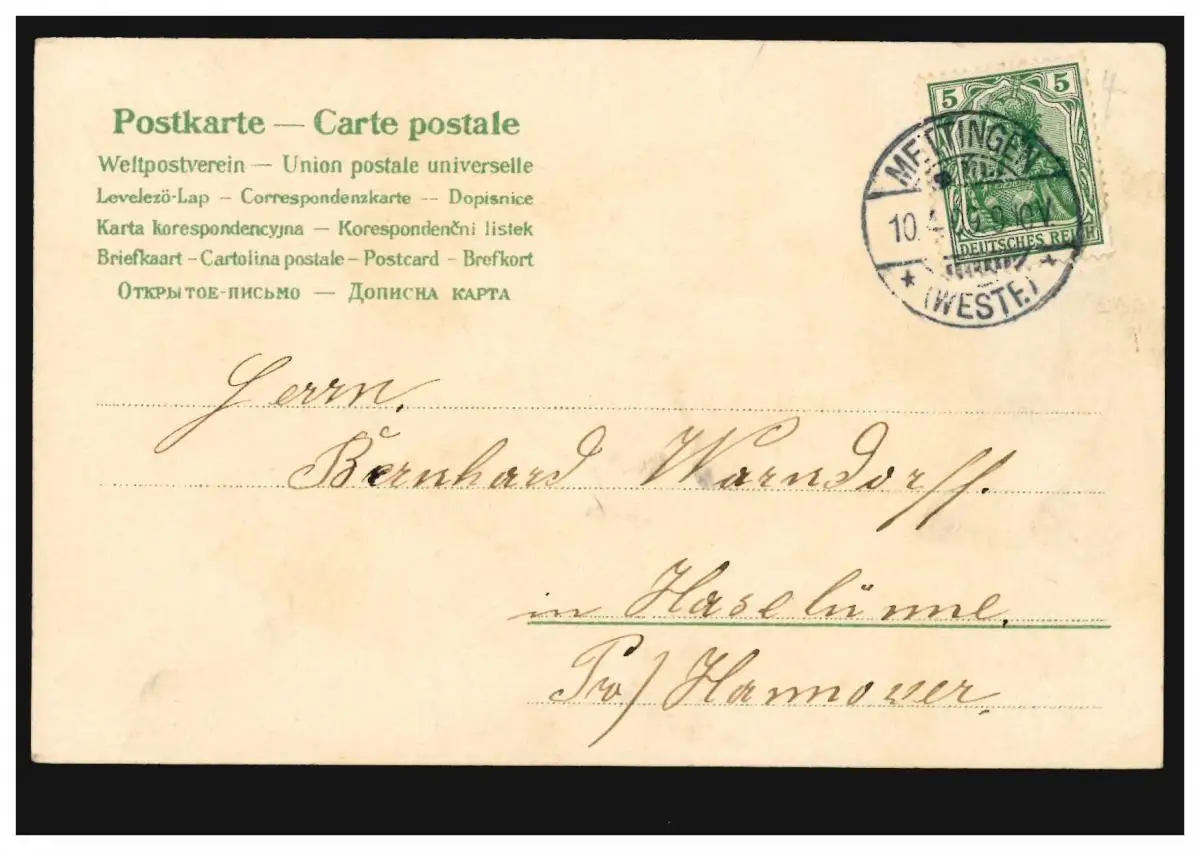 Postkarte — Carte postale
Weltpostverein — Union postale universelle
Levelező-Lap – Correspondenzkarte — Dopisnice
Karta korespondencyjna — Korespondenční listek
Briefkaart – Cartolina postale – Postcard – Brefkort
Открытое-письмо — Дописна карта
5 5
DEUTSCHES REICH
METTINGEN
10.4. 9-10V.
* (WESTF.) *
Herrn.
Bernhard Warndorff.
in Haselünne.
Prov/ Hannover.